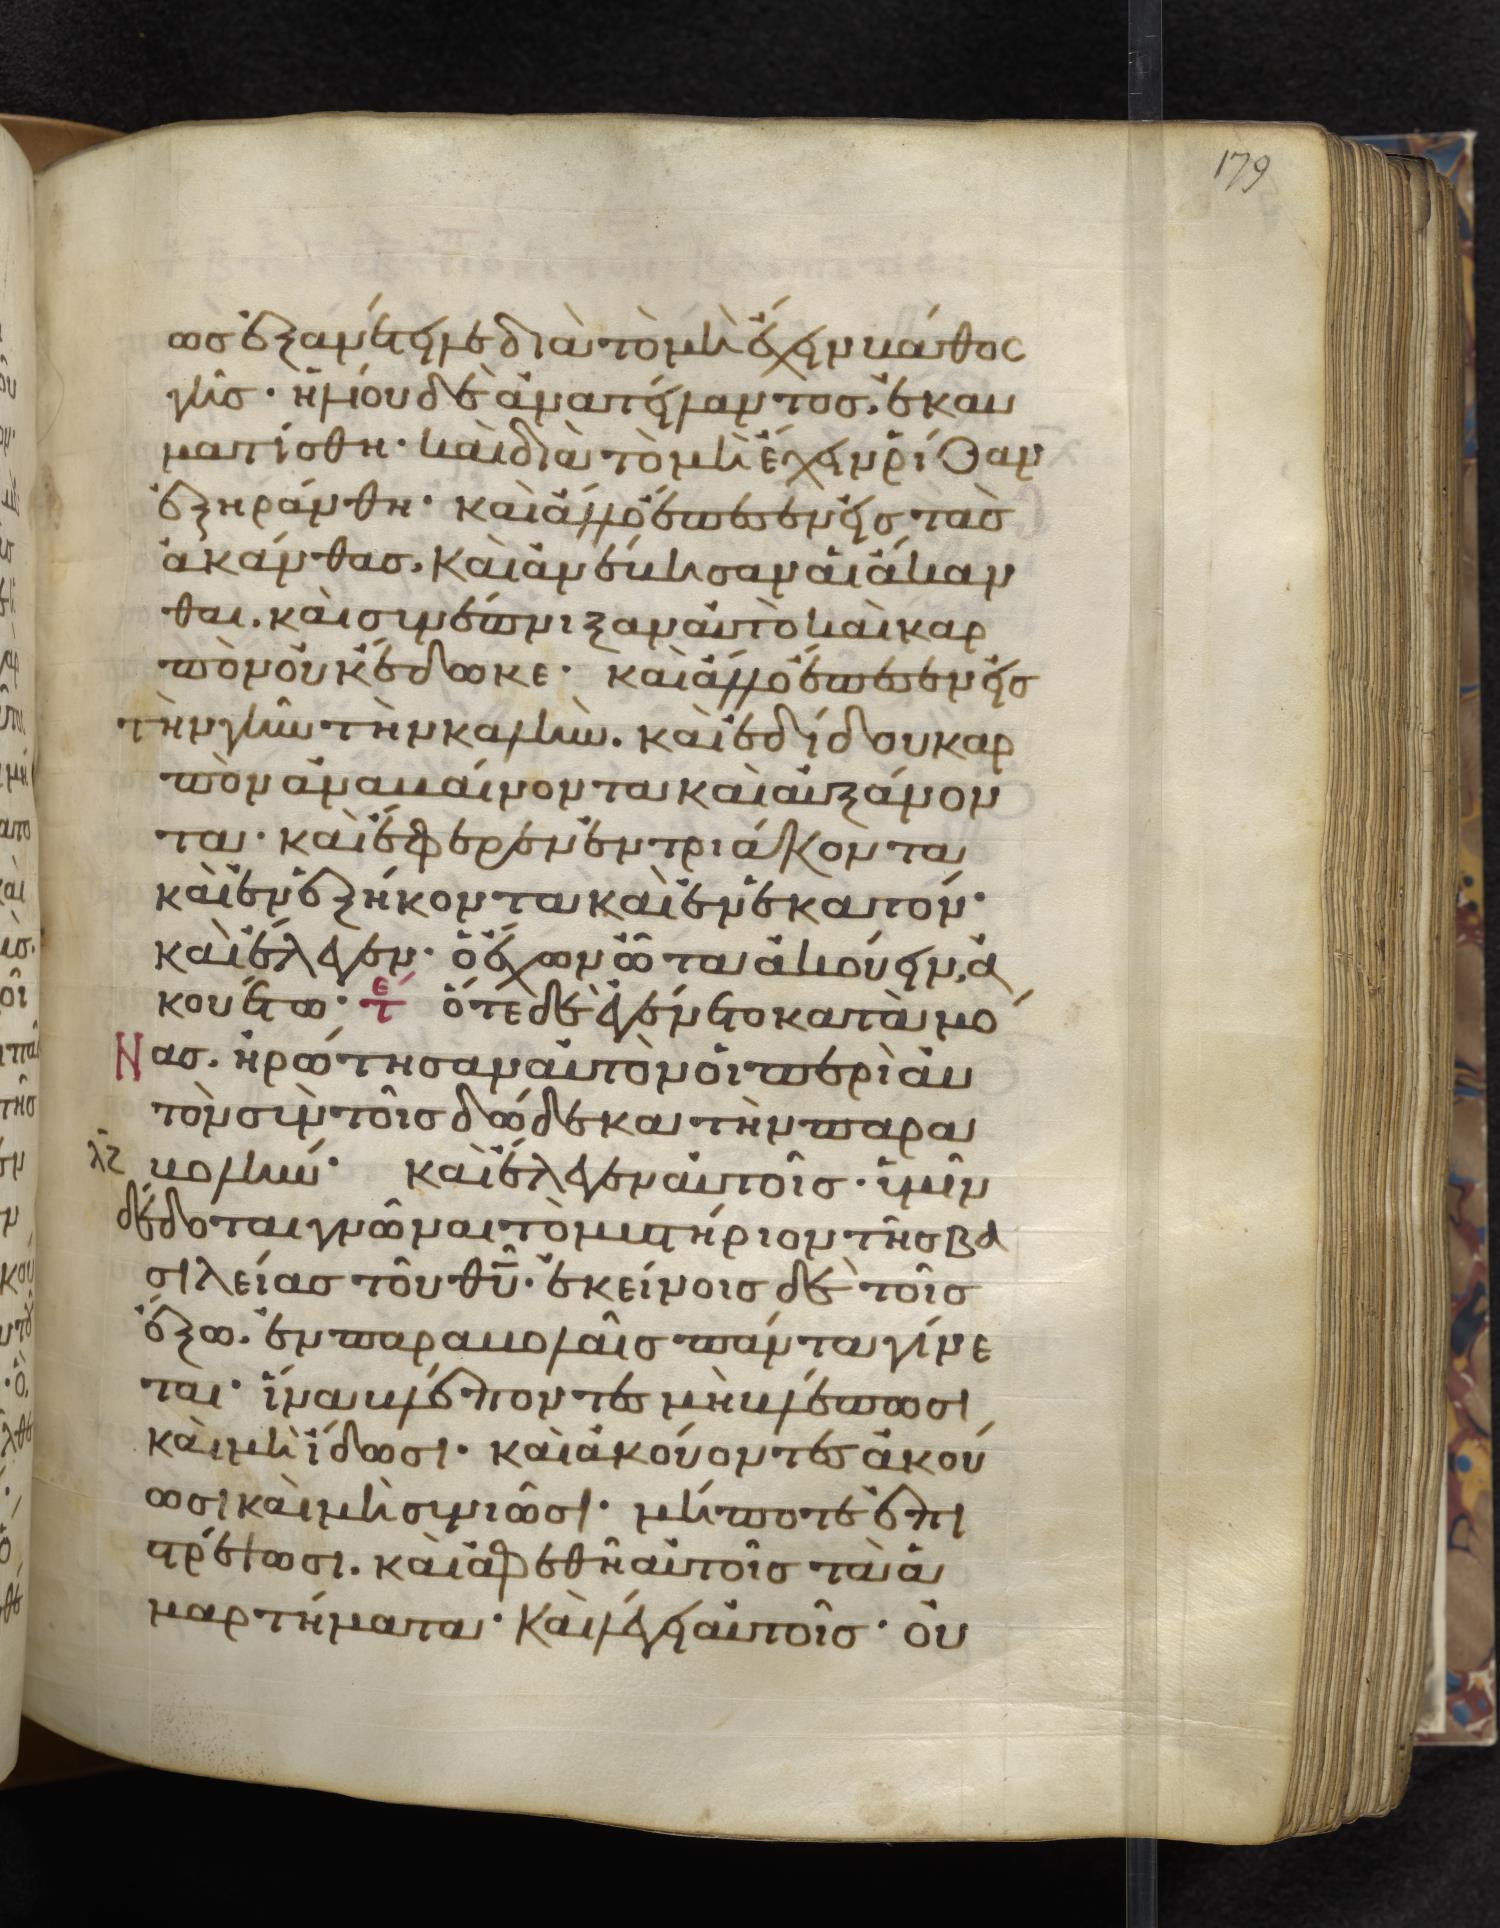 179
ωσ ἐξανέτειλε διὰ τὸ μὴ ἔχειν βάθος
γῆσ· ἡλίου δὲ ἀνατείλαντοσ. ἐκαυ
ματίσθη· καὶ διὰ τὸ μὴ ἔχειν ῥίζαν
ἐξηράνθη· καὶ ἄλλο ἔπεσεν εἰσ τὰσ
ἀκάνθασ. καὶ ἀνέβησαν αἱ ἄκαν
θαι. καὶ συνέπνιξαν αὐτὸ καὶ καρ
πὸν οὐκ ἔδωκε· καὶ ἄλλο ἔπεσεν εἰσ
τὴν γῆν τὴν καλὴν. καὶ ἐδίδου καρ
πὸν ἀναβαίνοντα καὶ αὐξάνον
τα· καὶ ἔφερεν ἐν τριάκοντα
καὶ ἐν ἑξήκοντα καὶ ἐν ἑκατόν·
καὶ ἔλεγεν· ὁ ἔχων ὦτα ἀκούειν. ἀ
κουέτω· τε ὅτε δὲ ἐγένετο κατὰ μό
Νασ. ἠρώτησαν αὐτὸν οἱ περὶ αὐ
τὸν σὺν τοῖσ δώδεκα τὴν παρα
λϛ βολήν· καὶ ἔλεγεν αὐτοῖσ· ὑμῖν
δέδοται γνῶναι τὸ μυστήριον τῆσ βα
σιλείασ τοῦ θῦ· ἐκείνοισ δὲ τοῖσ
ἔξω. ἐν παραβολαῖσ πάντα γίνε
ται· ἵνα βλέποντεσ μὴ βλέπωσι
καὶ μὴ ἴδωσι· καὶ ἀκούοντεσ ἀκού
ωσι καὶ μὴ συνιῶσι· μήποτε ἐπι
στρέψωσι. καὶ ἀφεθῆ αὐτοῖσ τὰ ἁ
μαρτήματα· Καὶ λέγει αὐτοῖσ· οὐ